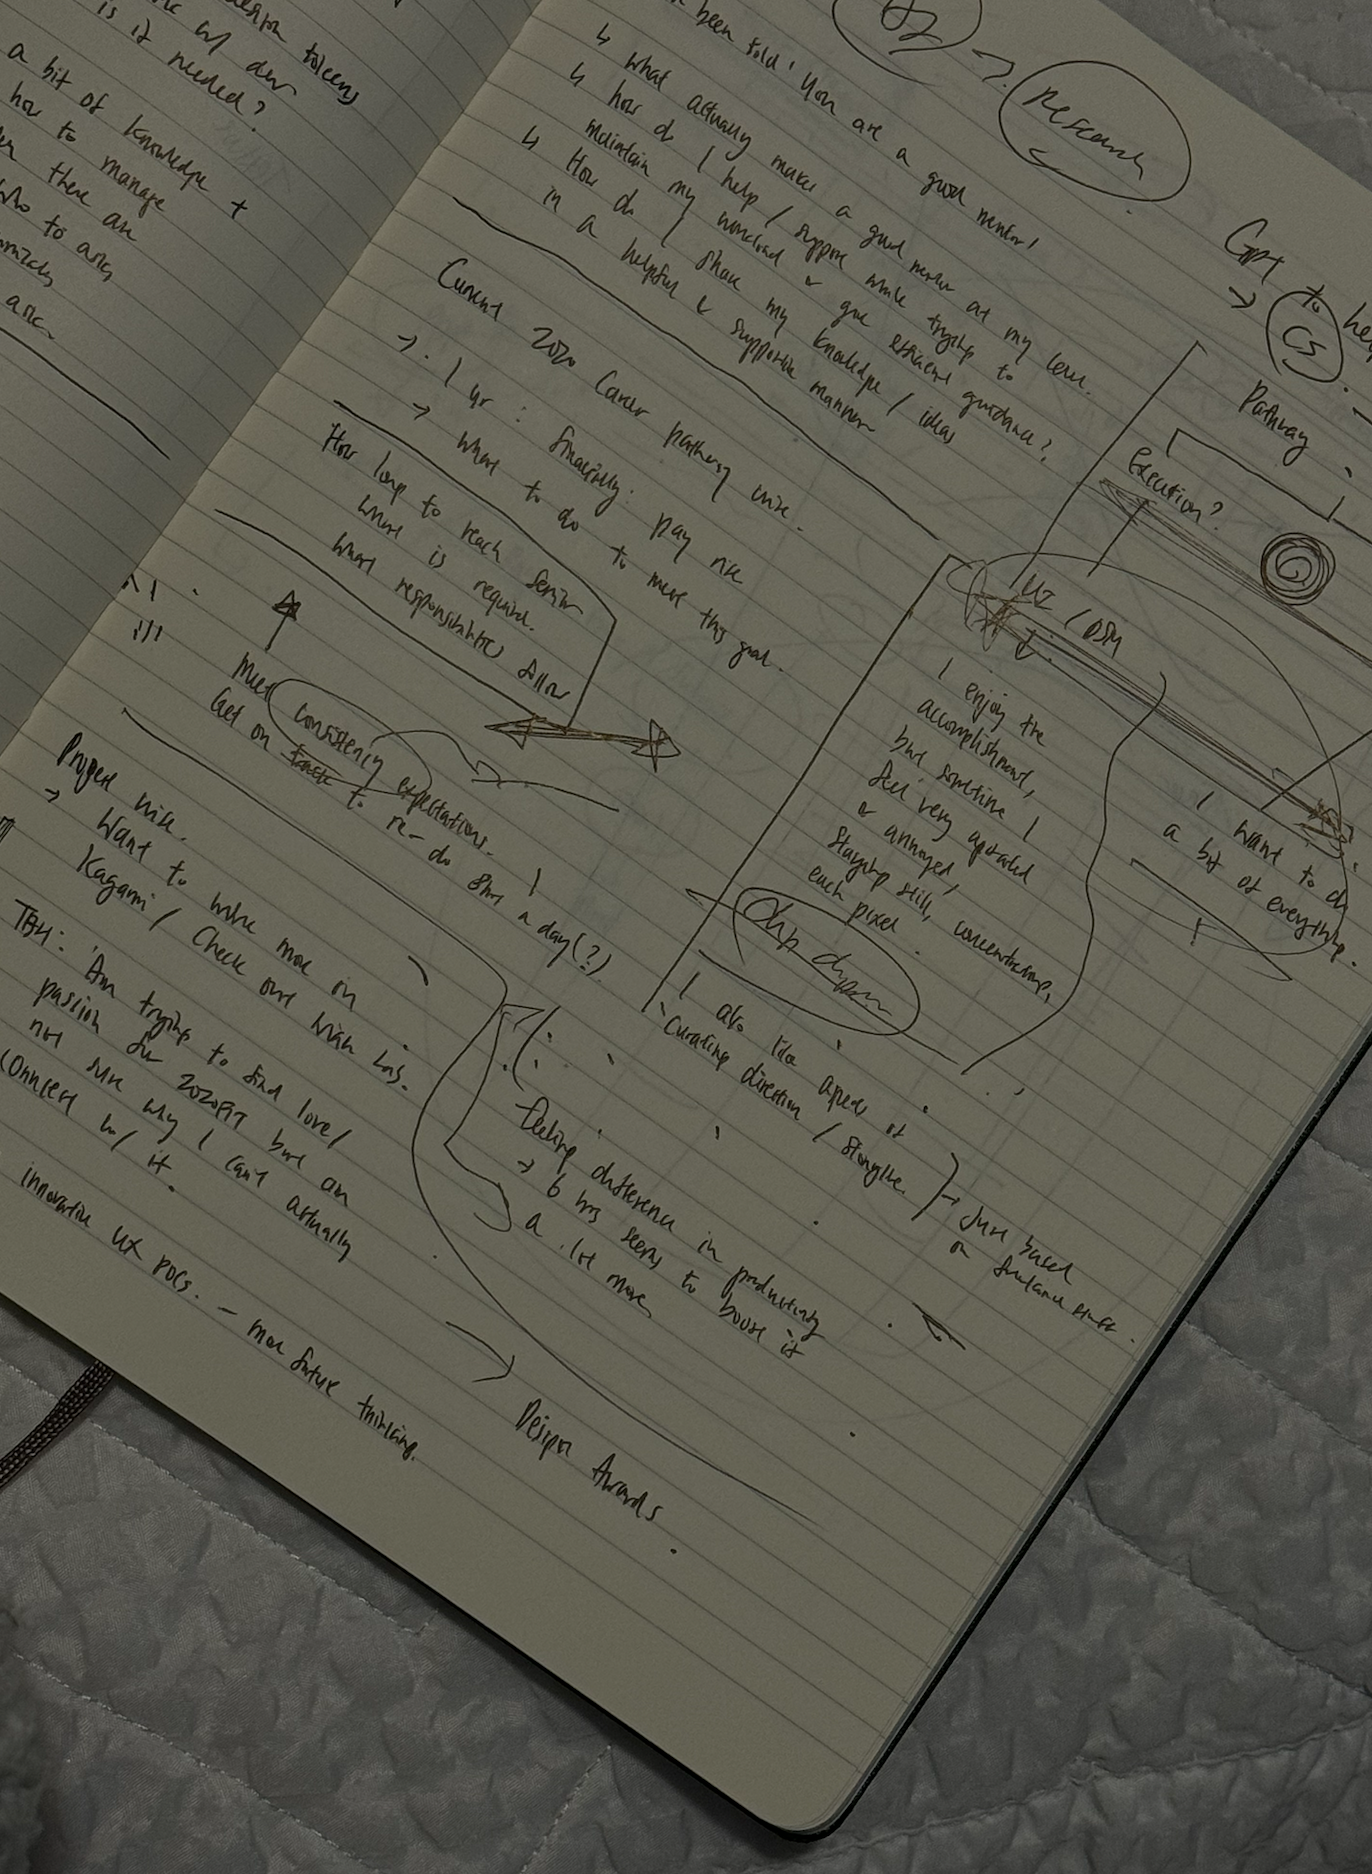 is it needed?
a bit of knowledge +
how to manage
there are
who to ask,
ask.
→ Research
been told 'You are a good mentor'
↳ what actually makes a good mentor at my level.
↳ how do I help / support while trying to
maintain my workload & give efficient guidance?
↳ How do I share my knowledge / ideas
in a helpful & supportive manner
Current 2020 Career pathway wise.
→ 1 yr : financially: pay rise
→ what to do to meet this goal.
How long to reach senior
what is required.
what responsibilities follow
Meet consistency expectations.
Get on to re-do start a day(?)
Project wise.
→ Want to work more on
Kagami / Check out with
TBH: Am trying to find love/
passion for but am
not sure why I can't actually
connect w/ it.
innovative UX POCs. - more future thinking.
→ Design Awards
Gpt to
→ CS
Pathway
Execution?
I enjoy the
accomplishment,
but sometime I
feel very agitated
& annoyed,
staying still, concentrating,
each pixel
I want to do
a bit of everything.
I also like aspects of
curating direction / storyline.
→ Just based
on freelance stuff.
Feeling difference in productivity
→ 6 hrs seems to boost it
a lot more